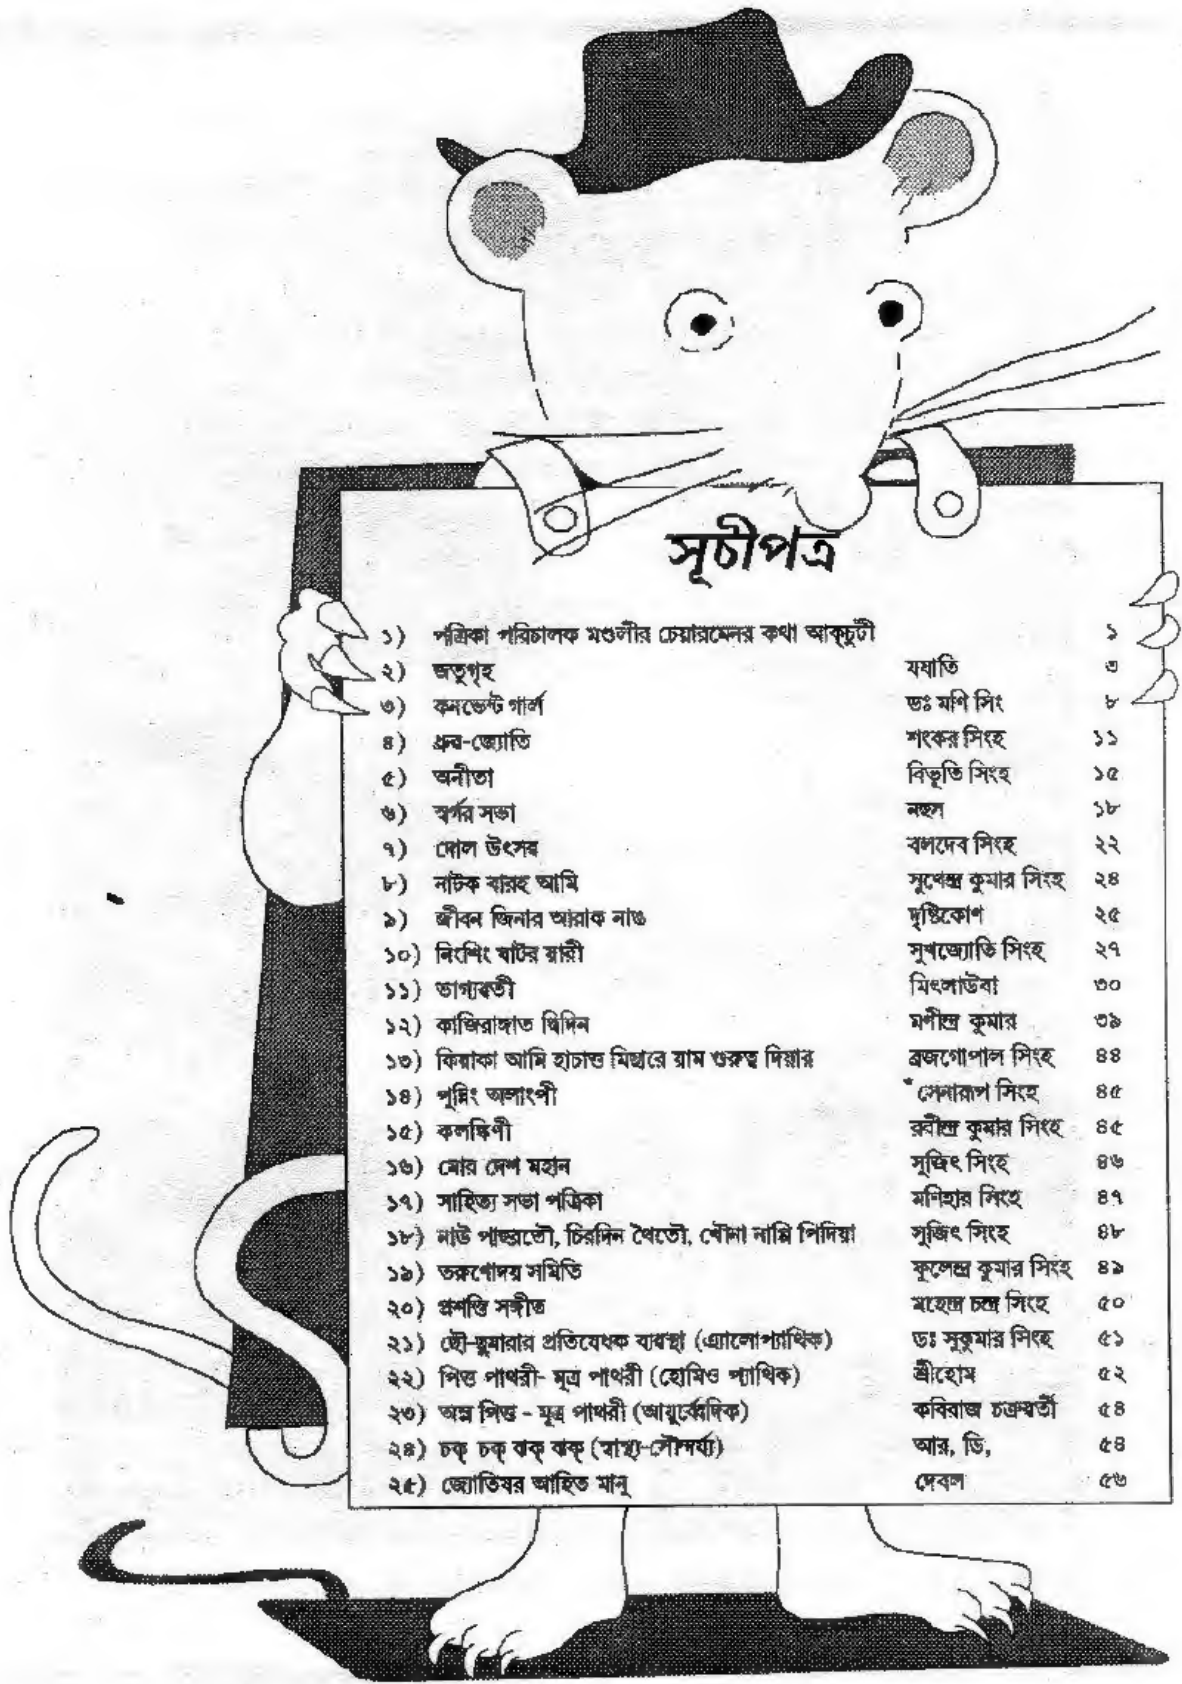 সূচীপত্র
১) পত্রিকা পরিচালক মণ্ডলীর চেয়ারমেনর কথা আক্চুটী ১
২) জতুগৃহ যযাতি ৩
৩) কনভেন্ট গার্ল ডঃ মণি সিং ৮
৪) ধ্রুব-জ্যোতি শংকর সিংহ ১১
৫) অনীতা বিভূতি সিংহ ১৫
৬) স্বর্গর সভা নহুল ১৮
৭) দোল উৎসৱ বলদেব সিংহ ২২
৮) নাটক বারহ আমি সুখেন্দ্র কুমার সিংহ ২৪
৯) জীবন জিনার আরাক নাঙ দৃষ্টিকোণ ২৫
১০) নিংশিং ঘাটর য়ারী সুখজ্যোতি সিংহ ২৭
১১) ভাগ্যৱতী মিংলাউবা ৩০
১২) কাজিরাঙ্গাত দ্বিদিন মণীন্দ্র কুমার ৩৯
১৩) কিয়াকা আমি হাচাত্ত মিছারে য়াম গুরুত্ব দিয়ার ব্রজগোপাল সিংহ ৪৪
১৪) পুন্নিং অলাংপী সেনারূপ সিংহ ৪৫
১৫) কলঙ্কিণী রবীন্দ্র কুমার সিংহ ৪৫
১৬) মোর দেশ মহান সুজিৎ সিংহ ৪৬
১৭) সাহিত্য সভা পত্রিকা মণিহার সিংহ ৪৭
১৮) নাউ পাহুরতৌ, চিরদিন থৈতৌ, খৌনা নান্নি পিদিয়া সুজিৎ সিংহ ৪৮
১৯) তরুণোদয় সমিতি ফুলেন্দ্র কুমার সিংহ ৪৯
২০) প্রশস্তি সঙ্গীত মহেন্দ্র চন্দ্র সিংহ ৫০
২১) ছৌ-ছুমারার প্রতিষেধক ব্যবস্থা (এ্যালোপ্যাথিক) ডঃ সুকুমার সিংহ ৫১
২২) পিত্ত পাথরী- মূত্র পাথরী (হোমিও প্যাথিক) শ্রীহোম ৫২
২৩) অম্ল পিত্ত - মূত্র পাথরী (আয়ুর্ব্বেদিক) কবিরাজ চক্রবর্তী ৫৪
২৪) চক্ চক্ ঝক্ ঝক্ (স্বাস্থ্য-সৌন্দর্য্য) আর, ডি, ৫৪
২৫) জ্যোতিষর আহিত মানু দেবল ৫৬